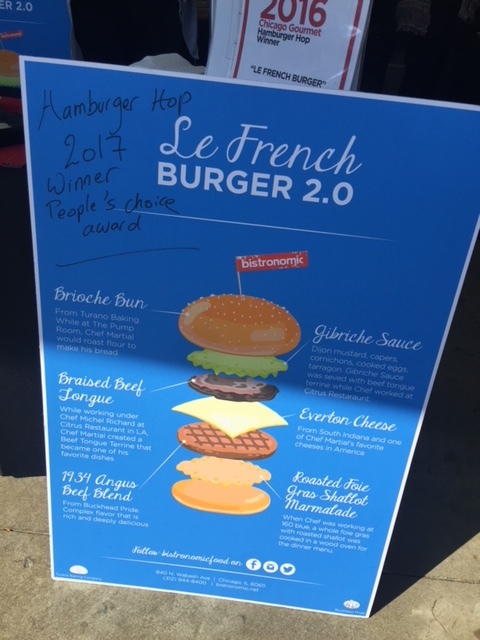 R 2.0
2016
Chicago Gourmet
Hamburger Hop
Winner
"LE FRENCH BURGER"
Hamburger Hop
2017
Winner
People's choice
award
Le French
BURGER 2.0
bistronomic
Brioche Bun
From Turano Baking
While at The Pump
Room, Chef Martial
would roast flour to
make his bread
Gibriche Sauce
Dijon mustard, capers,
cornichons, cooked eggs,
tarragon. Gibriche Sauce
was served with beef tongue
terrine while Chef worked at
Citrus Restaurant.
Braised Beef
Tongue
While working under
Chef Michel Richard at
Citrus Restaurant in LA,
Chef Martial created a
Beef Tongue Terrine that
became one of his
favorite dishes
Everton Cheese
From South Indiana and one
of Chef Martial's favorite
cheeses in America
1934 Angus
Beef Blend
From Buckhead Pride.
Complex flavor that is
rich and deeply delicious
Roasted Foie
Gras Shallot
Marmalade
When Chef was working at
160 blue, a whole foie gras
with roasted shallot was
cooked in a wood oven for
the dinner menu.
Follow bistronomicfood on
840 N. Wabash Ave | Chicago, IL 60611
(312) 944-8400 | bistronomic.net